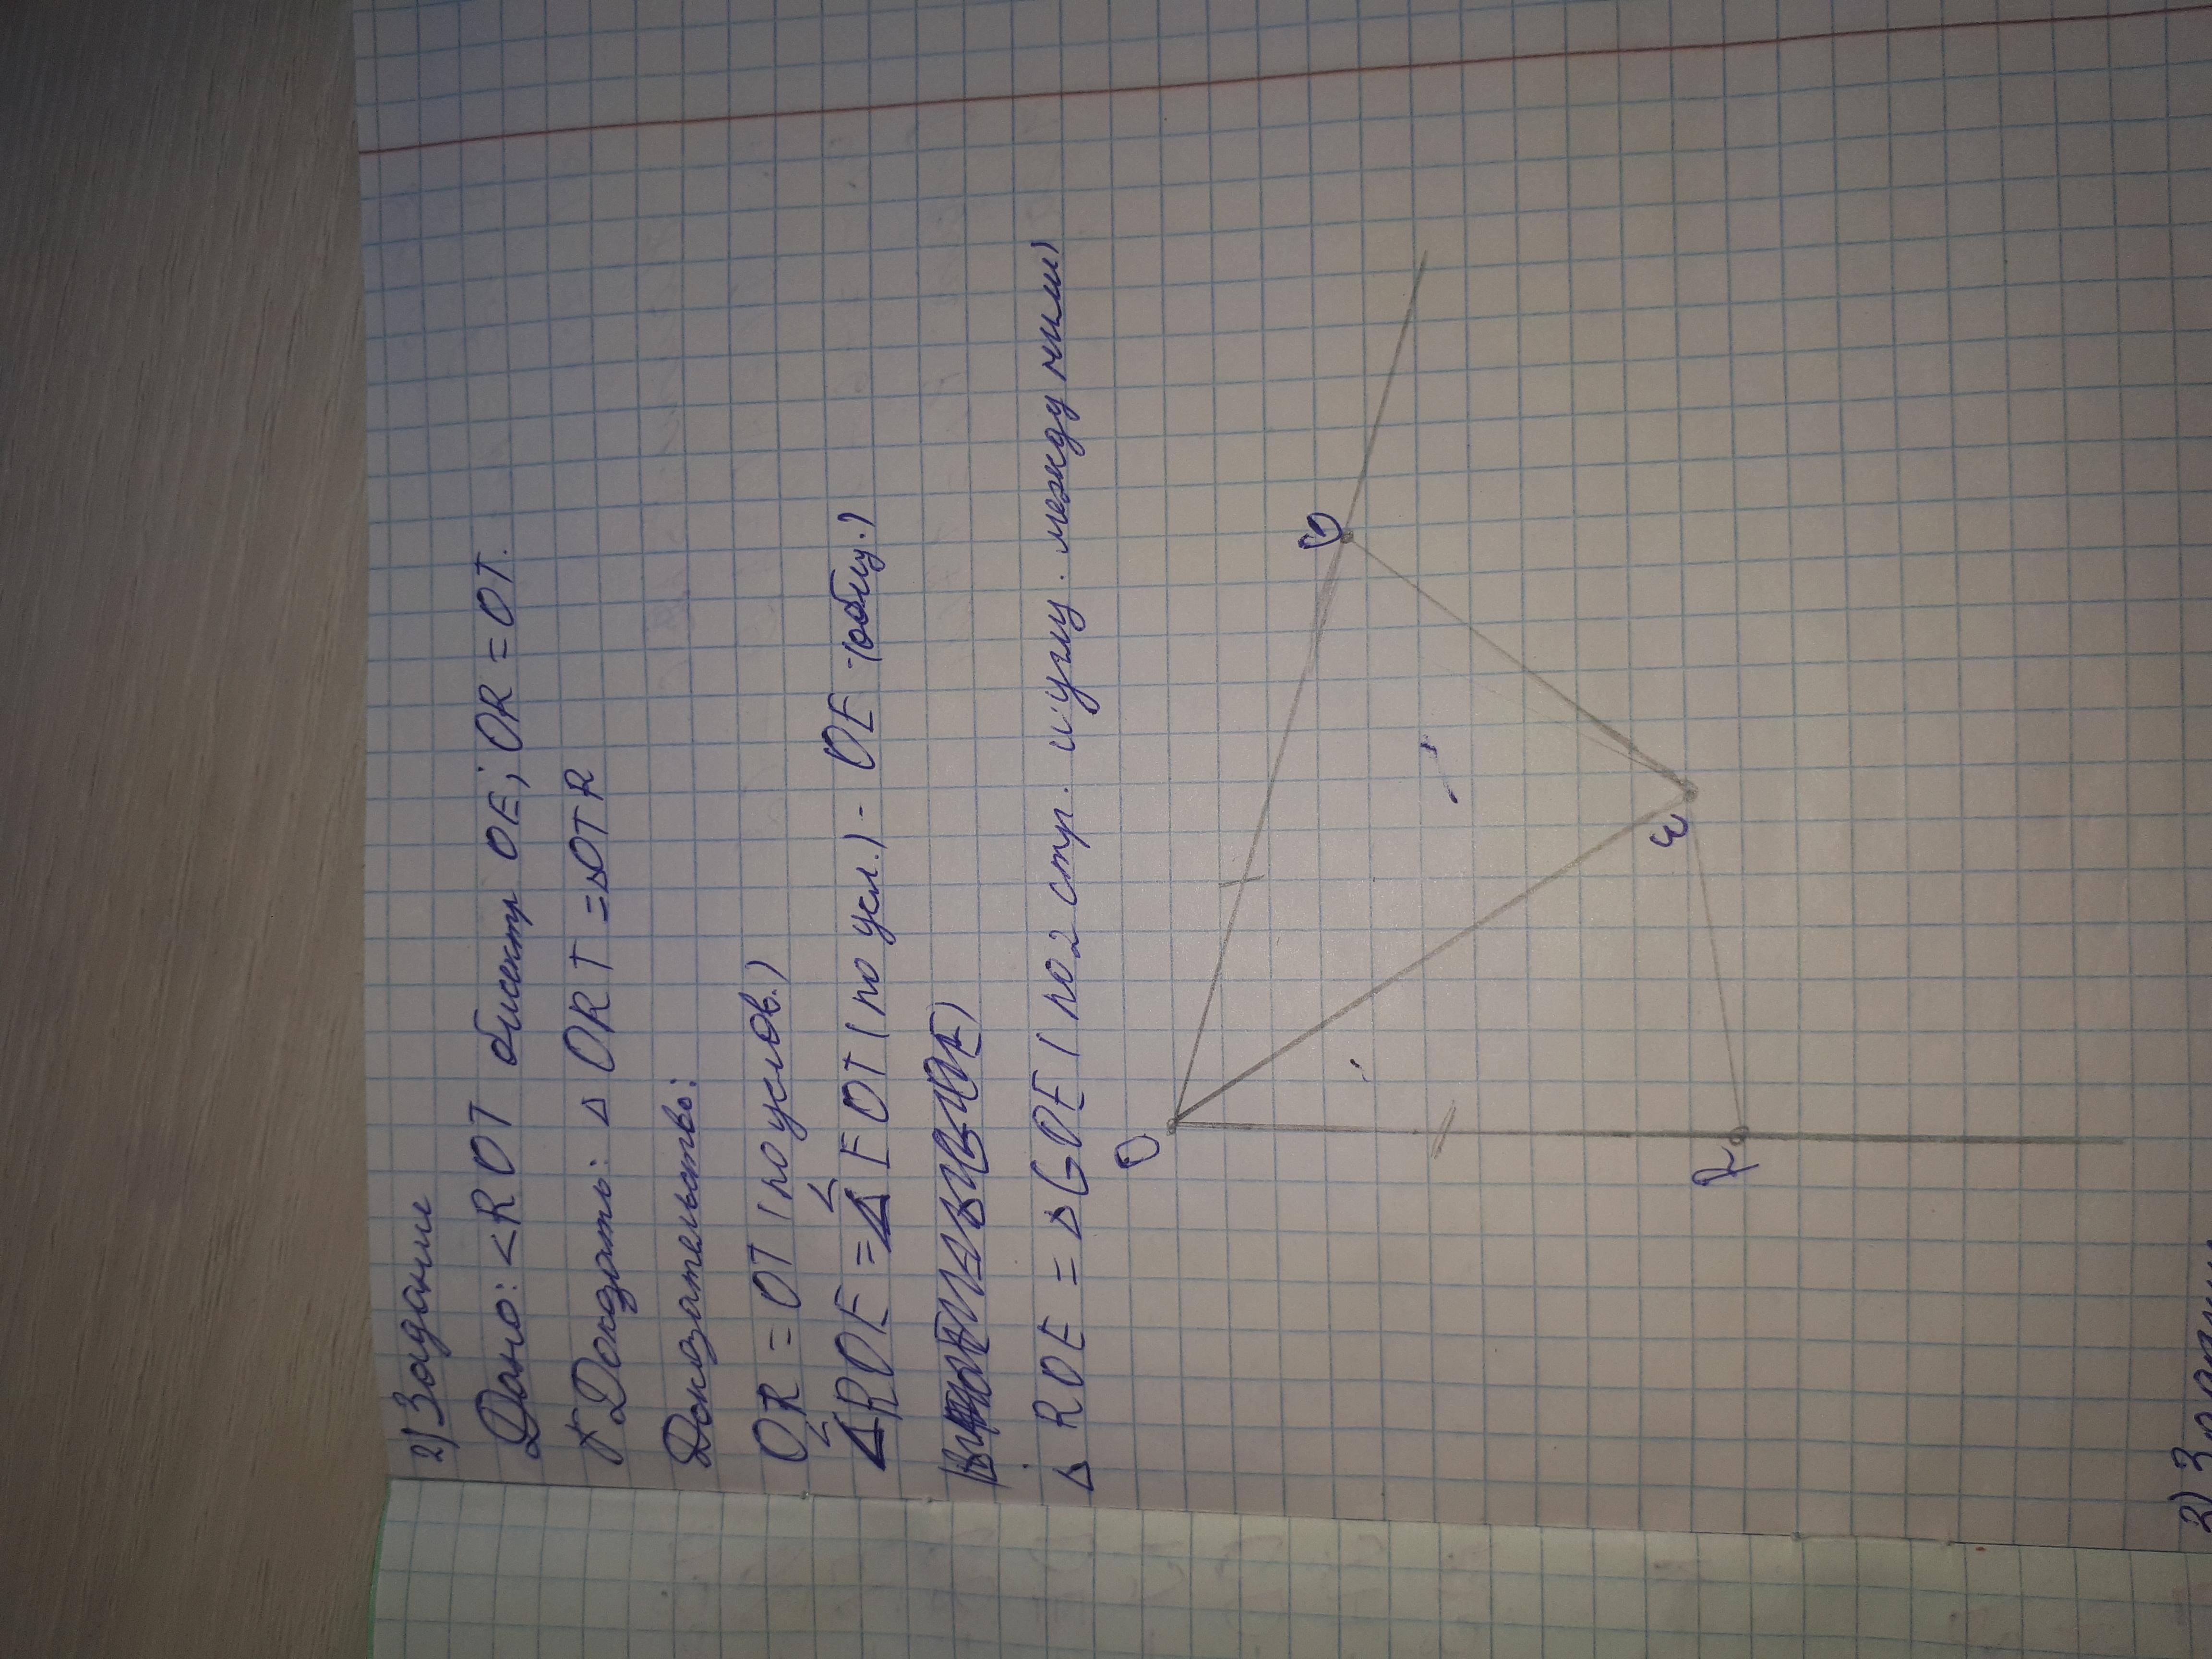 2) Задание
Дано: <ROT биссектр OE; OR = OT.
Доказать: △ ORT = △OTR
Доказательство:
OR = OT (по услов.)
<ROE = <EOT (по усл.) - OE -(общ.)
△ ROE = △ GOE (по 2 стр. и углу. между ними)
O
G
E
R
3) Задание